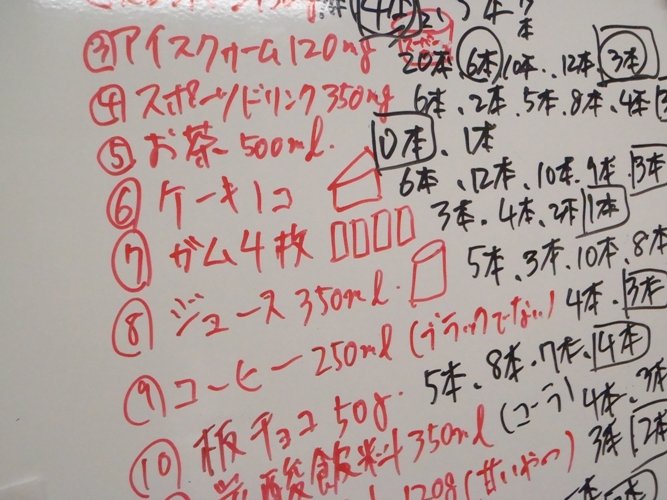 ③アイスクリーム120mg 20本 6本 10本、12本 3本
④スポーツドリンク350mg 6本、2本、5本、8本、4本
⑤お茶500ml. 10本、1本
⑥ケーキ1コ 6本、12本、10本、9本、3本
⑦ガム4枚 3本、4本、2本 1本
⑧ジュース350ml. 5本、3本、10本、8本
⑨コーヒー250ml(ブラックでない) 4本、3本
⑩板チョコ50g. 5本、8本、7本、14本
酸飲料350ml(コーラ) 4本、3本
120g(甘いやつ) 3本 2本